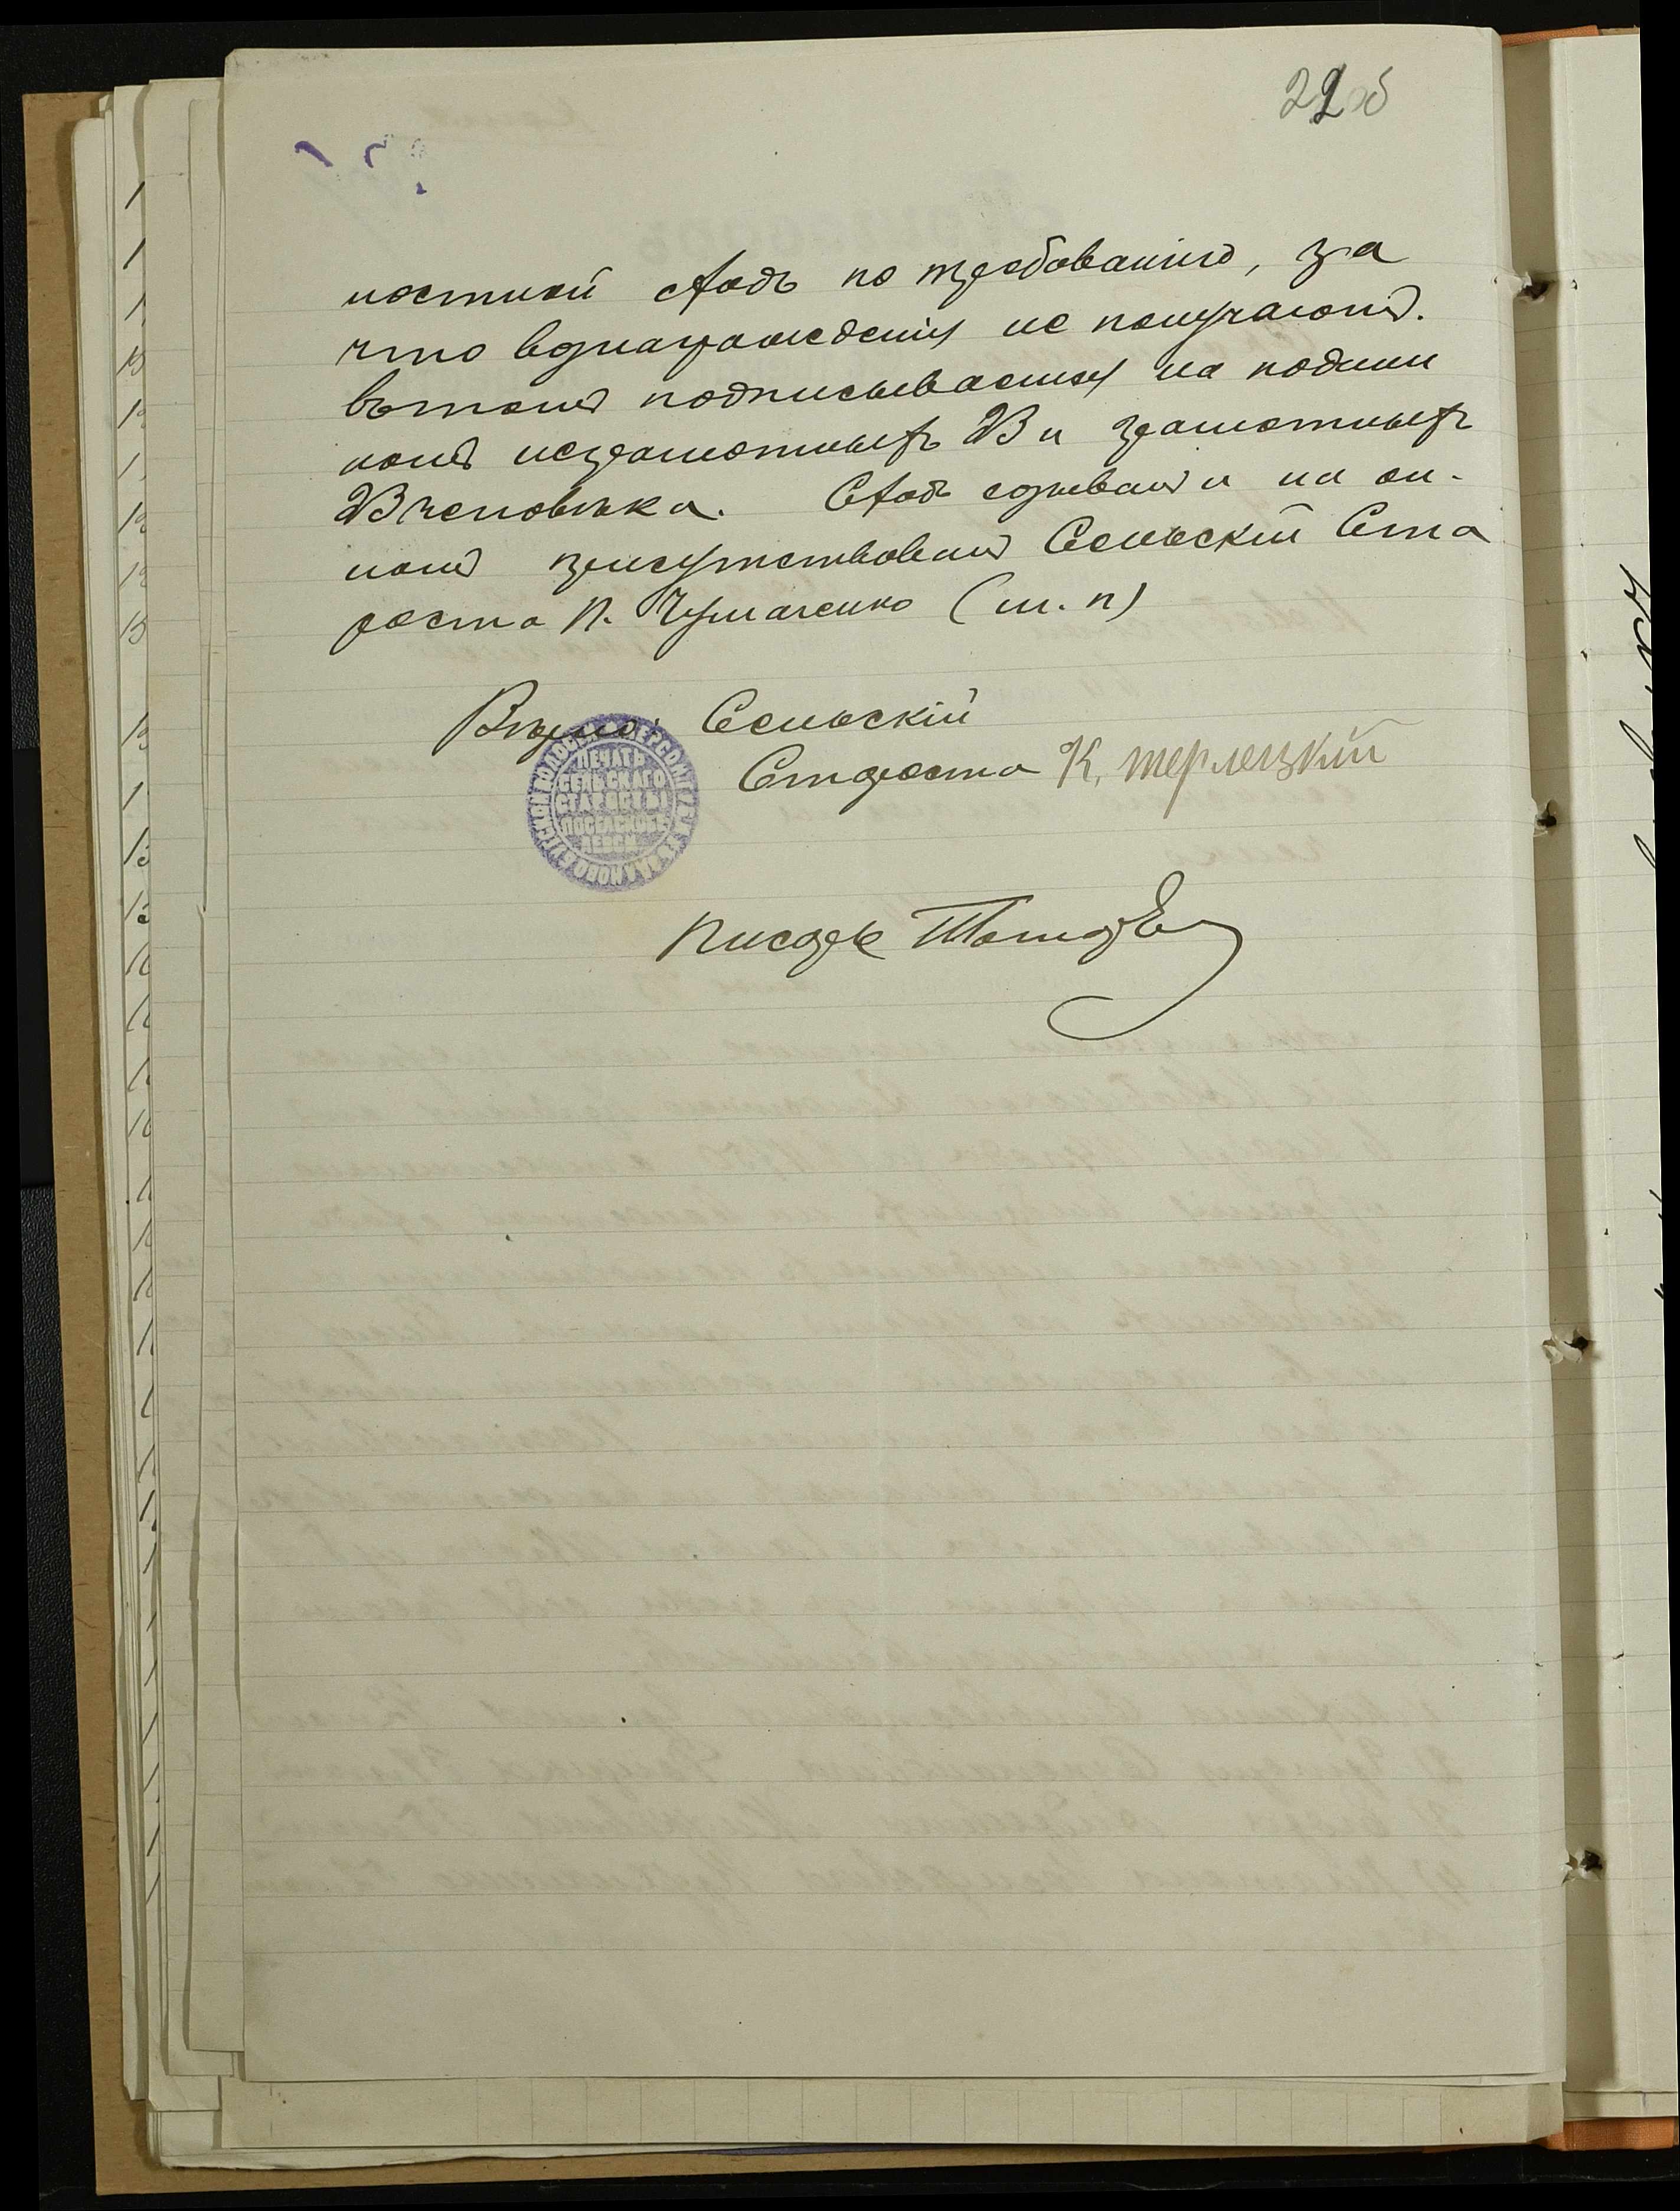 22об
ностной сходъ по требованію, за
что вознагражденія не получаютъ.
Въ томъ подписываемся на подлин
номъ неграмотныхъ 23 и грамотныхъ
23 человѣка. Сходъ созывалъ и на он-
номъ присутствовалъ Сельскій Ста
роста П. Чумаченко (м. п)
Вѣрно: Сельскій
Староста К, терлецкій
ПЕЧАТЬ
СЕЛЬСКАГО
СТАРОСТЫ
Писарь